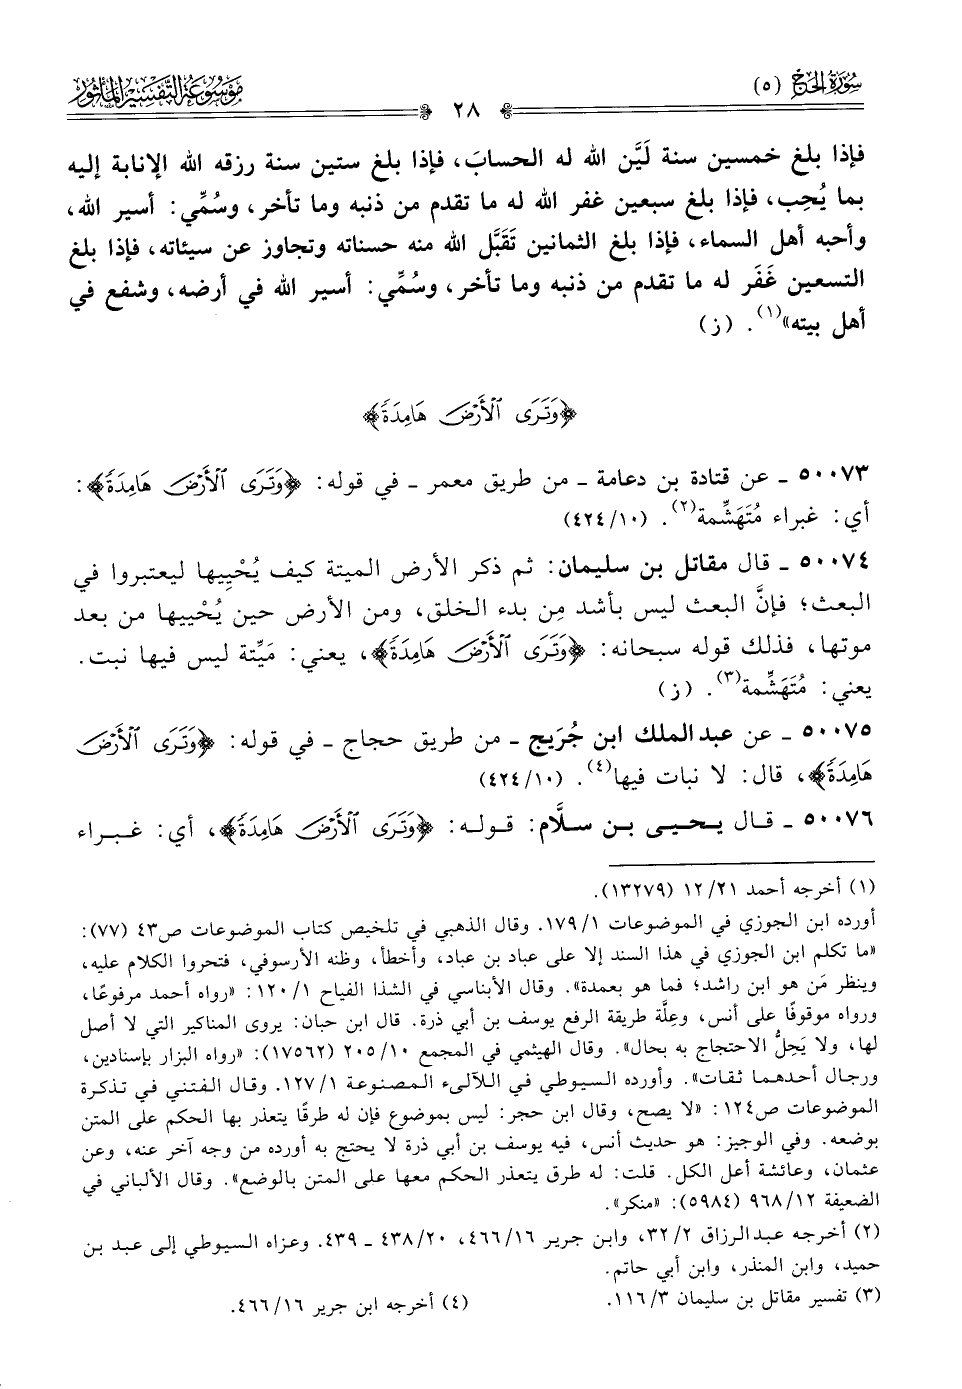 سُورَةُ الحَجّ (٥)
٢٨
مَوْسُوعَةُ التَّفْسِيرِ المَأْثُور
فإذا بلغ خمسين سنة لَيَّن الله له الحسابَ، فإذا بلغ ستين سنة رزقه الله الإنابة إليه
بما يُحِب، فإذا بلغ سبعين غفر الله له ما تقدم من ذنبه وما تأخر، وسُمِّي: أسير الله،
وأحبه أهل السماء، فإذا بلغ الثمانين تَقَبَّل الله منه حسناته وتجاوز عن سيئاته، فإذا بلغ
التسعين غَفَر له ما تقدم من ذنبه وما تأخر، وسُمِّي: أسير الله في أرضه، وشفع في
أهل بيته»(١). (ز)
﴿وَتَرَى ٱلْأَرْضَ هَامِدَةً﴾
٥٠٠٧٣ ـ عن قتادة بن دعامة ـ من طريق معمر ـ في قوله: ﴿وَتَرَى ٱلْأَرْضَ هَامِدَةً﴾:
أي: غبراء مُتَهَشِّمة(٢). (٤٢٤/١٠)
٥٠٠٧٤ ـ قال مقاتل بن سليمان: ثم ذكر الأرض الميتة كيف يُحْيِيها ليعتبروا في
البعث؛ فإنَّ البعث ليس بأشد مِن بدء الخلق، ومن الأرض حين يُحْييها من بعد
موتها، فذلك قوله سبحانه: ﴿وَتَرَى ٱلْأَرْضَ هَامِدَةً﴾، يعني: مَيِّتة ليس فيها نبت.
يعني: مُتَهَشِّمة(٣). (ز)
٥٠٠٧٥ ـ عن عبد الملك ابن جُرَيج ـ من طريق حجاج ـ في قوله: ﴿وَتَرَى ٱلْأَرْضَ
هَامِدَةً﴾، قال: لا نبات فيها(٤). (٤٢٤/١٠)
٥٠٠٧٦ ـ قال يحيى بن سلَّام: قوله: ﴿وَتَرَى ٱلْأَرْضَ هَامِدَةً﴾، أي: غبراء
(١) أخرجه أحمد ١٢/٢١ (١٣٢٧٩).
أورده ابن الجوزي في الموضوعات ١٧٩/١. وقال الذهبي في تلخيص كتاب الموضوعات ص٤٣ (٧٧):
«ما تكلم ابن الجوزي في هذا السند إلا على عباد بن عباد، وأخطأ، وظنه الأرسوفي، فتحروا الكلام عليه،
وينظر مَن هو ابن راشد؛ فما هو بعمدة». وقال الأبناسي في الشذا الفياح ١٢٠/١: «رواه أحمد مرفوعًا،
ورواه موقوفًا على أنس، وعِلَّة طريقة الرفع يوسف بن أبي ذرة. قال ابن حبان: يروى المناكير التي لا أصل
لها، ولا يَحِلُّ الاحتجاج به بحال». وقال الهيثمي في المجمع ٢٠٥/١٠ (١٧٥٦٢): «رواه البزار بإسنادين،
ورجال أحدهما ثقات». وأورده السيوطي في اللآلىء المصنوعة ١٢٧/١. وقال الفتني في تذكرة
الموضوعات ص١٢٤: «لا يصح، وقال ابن حجر: ليس بموضوع فإن له طرقًا يتعذر بها الحكم على المتن
بوضعه. وفي الوجيز: هو حديث أنس، فيه يوسف بن أبي ذرة لا يحتج به أورده من وجه آخر عنه، وعن
عثمان، وعائشة أعل الكل. قلت: له طرق يتعذر الحكم معها على المتن بالوضع». وقال الألباني في
الضعيفة ٩٦٨/١٢ (٥٩٨٤): «منكر».
(٢) أخرجه عبدالرزاق ٣٢/٢، وابن جرير ٤٦٦/١٦، ٤٣٨/٢٠ ـ ٤٣٩. وعزاه السيوطي إلى عبد بن
حميد، وابن المنذر، وابن أبي حاتم.
(٣) تفسير مقاتل بن سليمان ١١٦/٣. (٤) أخرجه ابن جرير ٤٦٦/١٦.